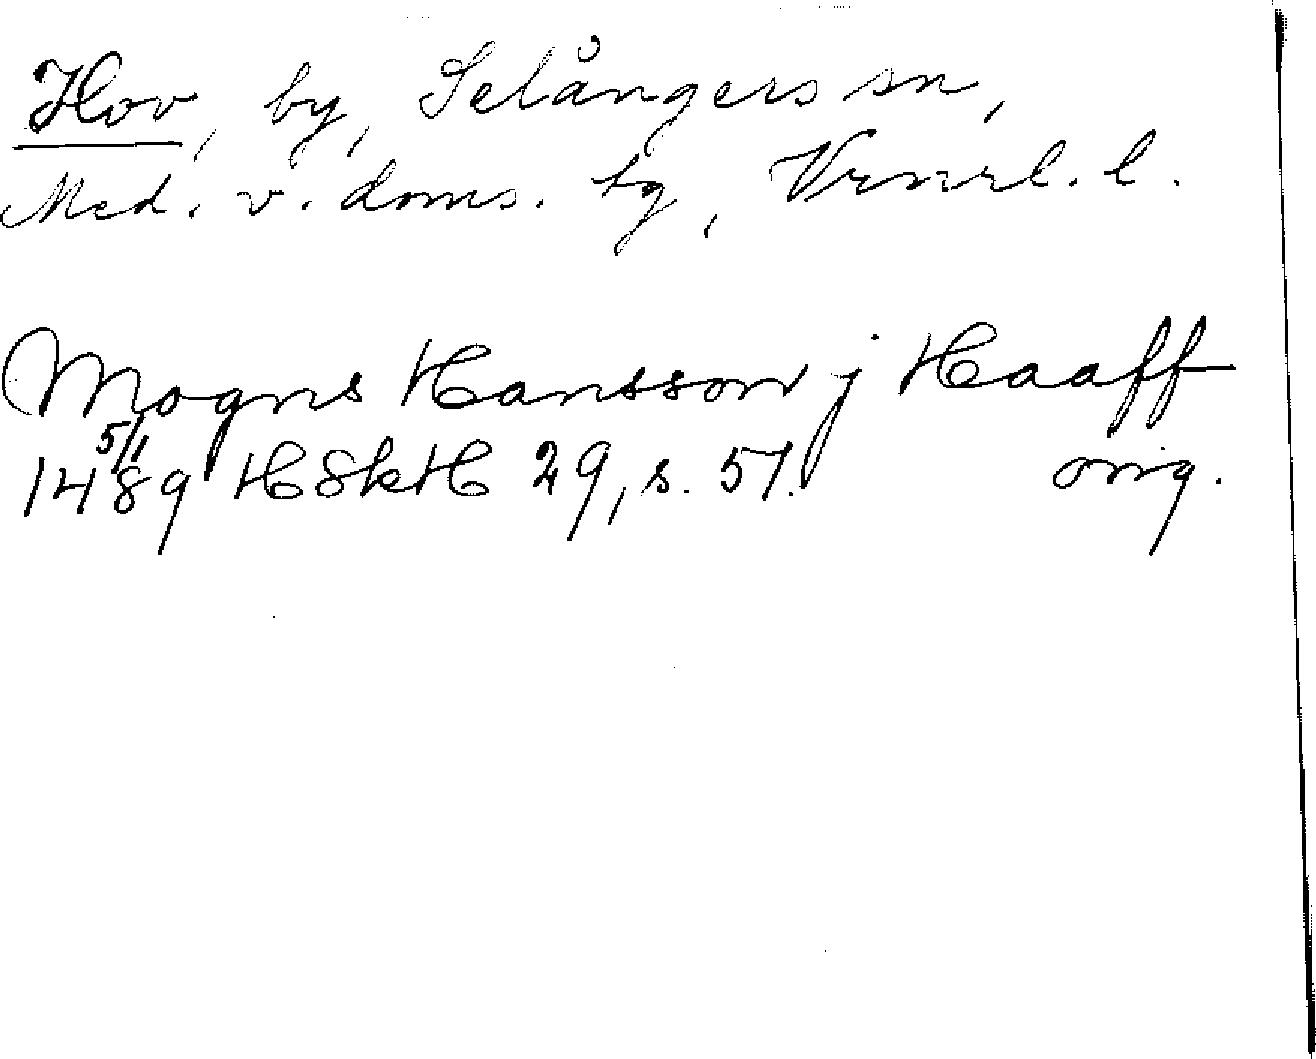 Hov, by, Selångers sn,
Med. v. doms. tg, Vrnrl. l.
Mogns Hansson j Haaff
5/1
1489 HSkH 29, s. 57. orig.